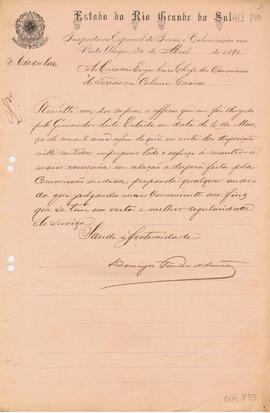 Estado do Rio Grande do Sul
Inspectoria Especial de Terras e Colonisação em
Porto Alegre, 30 de Abril de 1890
Circular
Ao Cidadão Engenheiro Chefe da Commissão
de Terras na Colonia Caxias
por copia, o officio que me foi dirigido
pelo Governador deste Estado em data de de Mar-
ço do corrente anno afim de que, em vista das disposições
nelle contidas, empregueis todo o esforço à manter a
maior economia em relação à despeza feita pela
Commissão propondo qualquer medi-
da que julgardes mais conveniente aos fins
que se tem em vista e melhor regularidade
do serviço.
Saude e fraternidade
Domingos